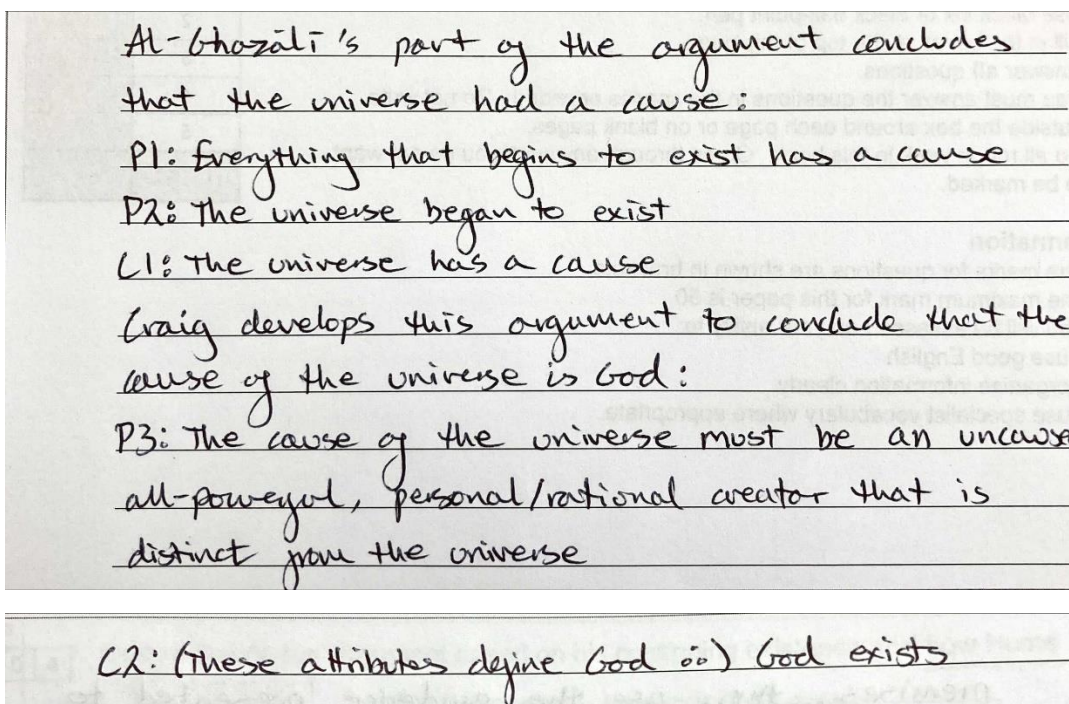 Al-Ghazālī's part of the argument concludes
that the universe had a cause:
P1: Everything that begins to exist has a cause
P2: The universe began to exist
C1: The universe has a cause
Craig develops this argument to conclude that the
cause of the universe is God:
P3: The cause of the universe must be an uncause
all-powerful, personal/rational creator that is
distinct from the universe
C2: (These attributes define God ∴) God exists